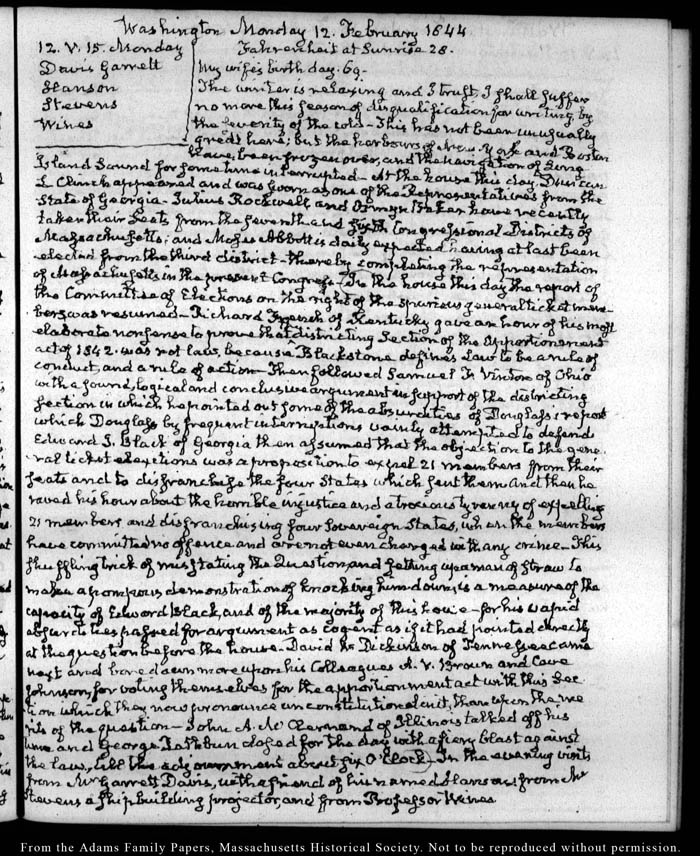 Washington Monday 12. February 1844
12. V. 15. Monday
Fahrenheit at Sunrise 28.
Davis Garrett
Hanson
Stevens
Wines
My wife's birth day. 69.
The winter is relaxing and I trust I shall suffer
no more this season of disqualification for writing by
the severity of the cold - This has not been unusually
great here; but the harbours of New-York and Boston
have been frozen over, and the navigation of Long
Island Sound for some time interrupted - At the house this day, Duncan
L Clinch appeared and was sworn as one of the Representatives from the
State of Georgia - Julius Rockwell and Osmyn Baker have recently
taken their Seats from the seventh and sixth Congressional Districts of
Massachusetts; and Moses Abbott is daily expected having at last been
elected from the third district - thereby completing the representation
of Massachusetts in the present Congress - In the house this day the report of
the Committee of Elections on the right of the spurious general ticket mem-
bers was resumed - Richard French of Kentucky gave an hour of his most
elaborate nonsense to prove that districting Section of the apportionment
act of 1842. was not law, because Blackstone defines Law to be a rule of
conduct, and a rule of action - Then followed Samuel F. Vinton of Ohio
with a sound, logical and conclusive argument in support of the districting
section in which he pointed out some of the absurdities of Douglass's report
which Douglass by frequent interruptions vainly attempted to defend
Edward J. Black of Georgia then assumed that the objection to the gene-
ral ticket elections was a proposition to expel 21 members from their
seats and to disfranchise the four States which sent them and then he
raved his hour about the horrible injustice and atrocious tyranny of expelling
21 members and disfranchising four Sovereign States, when the members
have committed no offence and are not even charged with any crime - This
shuffling trick of misstating the Question, and setting up a man of straw to
make a pompous demonstration of knocking him down, is a measure of the
capacity of Edward Black, and of the majority of this house - for his vapid
absurdities passed for argument as cogent as if it had pointed directly
at the question before the house - David W Dickinson of Tennessee came
next and bore down more upon his Colleagues A. V. Brown and Cave
Johnson, for voting themselves for the apportionment act with this Sec-
tion which they now pronounce unconstitutional in it, than upon the me-
rits of the question - John A. McClernand of Illinois talked off his
hour and George Rathbun closed for the day with a fiery blast against
the law, till the adjournment about six O'Clock - In the evening visits
from Mr Garrett Davis, with a friend of his named Hanson; from Mr
Stevens a ship building projector, and from Professor Wines
From the Adams Family Papers, Massachusetts Historical Society. Not to be reproduced without permission.